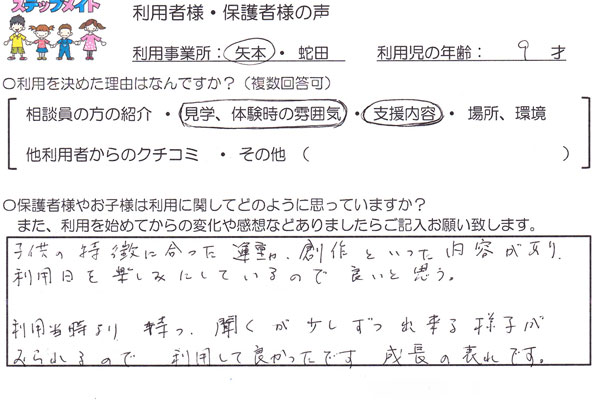 ステップメイト
利用者様・保護者様の声
利用事業所：矢本・ 蛇田 利用児の年齢： 9 才
○利用を決めた理由はなんですか？（複数回答可）
相談員の方の紹介 ・ 見学、体験時の雰囲気 ・ 支援内容 ・ 場所、環境
他利用者からのクチコミ ・ その他 （ ）
○保護者様やお子様は利用に関してどのように思っていますか？
また、利用を始めてからの変化や感想などありましたらご記入お願い致します。
子供の特徴に合った運動、創作といった内容があり、
利用日を楽しみにしているので良いと思う。
利用当時より 待つ、聞くが少しずつ出来る様子が
みられるので 利用して良かったです 成長の表れです。